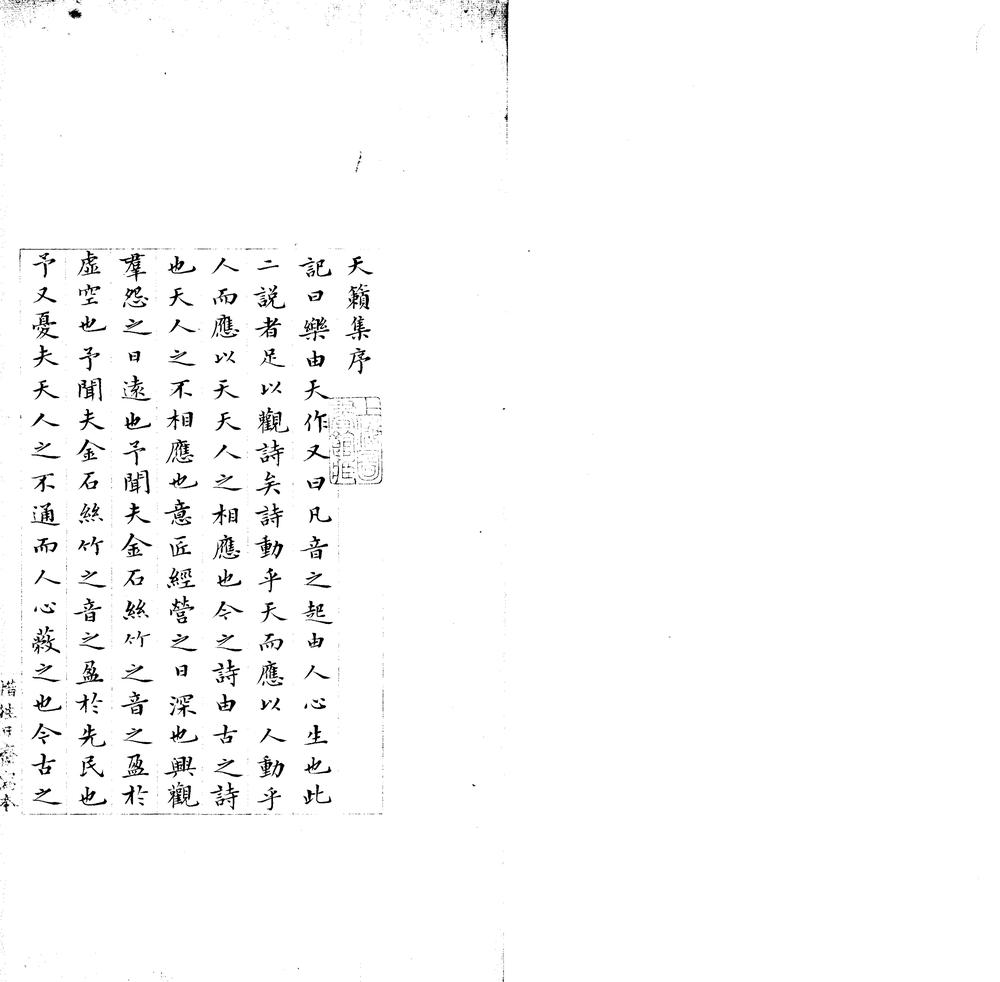 天籟集序
記曰樂由天作又曰凡音之起由人心生也此
二説者足以觀詩矣詩動乎天而應以人動乎
人而應以天天人之相應也今之詩由古之詩
也天人之不相應也意匠經營之日深也興觀
羣怨之日遠也予聞夫金石絲竹之音之盈於
虛空也予聞夫金石絲竹之音之盈於先民也
予又憂夫天人之不通而人心蔽之也今古之